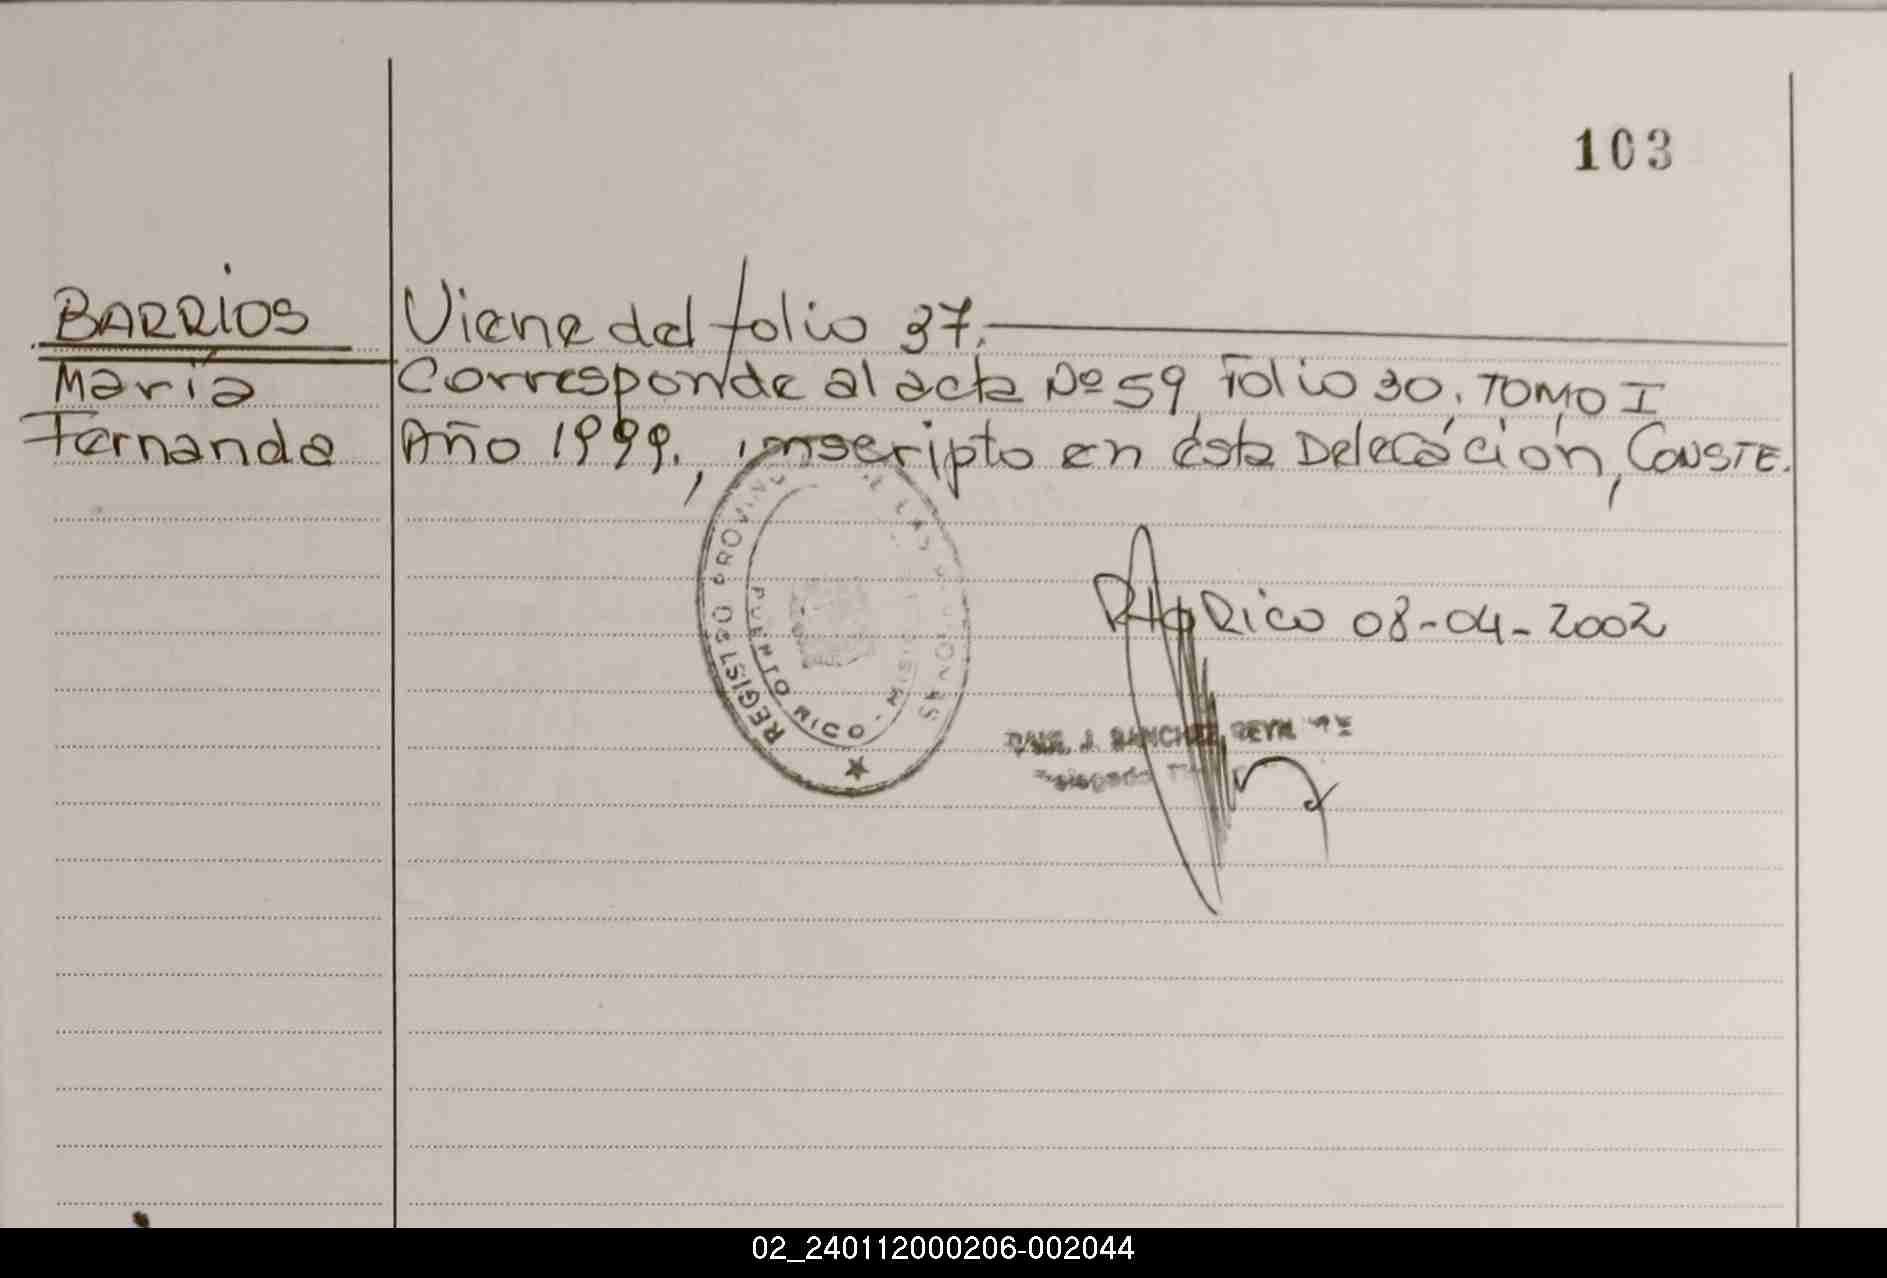 103
BARRIOS
María
Fernanda
Viene del folio 37.
Corresponde al acta Nº 59, Folio 30, TOMO I
Año 1999, inscripto en ésta Delegación, CONSTE.
REGISTRO PROVINC DE LAS PERSONAS
PUERTO RICO - MISIONES
Pto Rico 08-04-2002
J. SANCHEZ
02_240112000206-002044